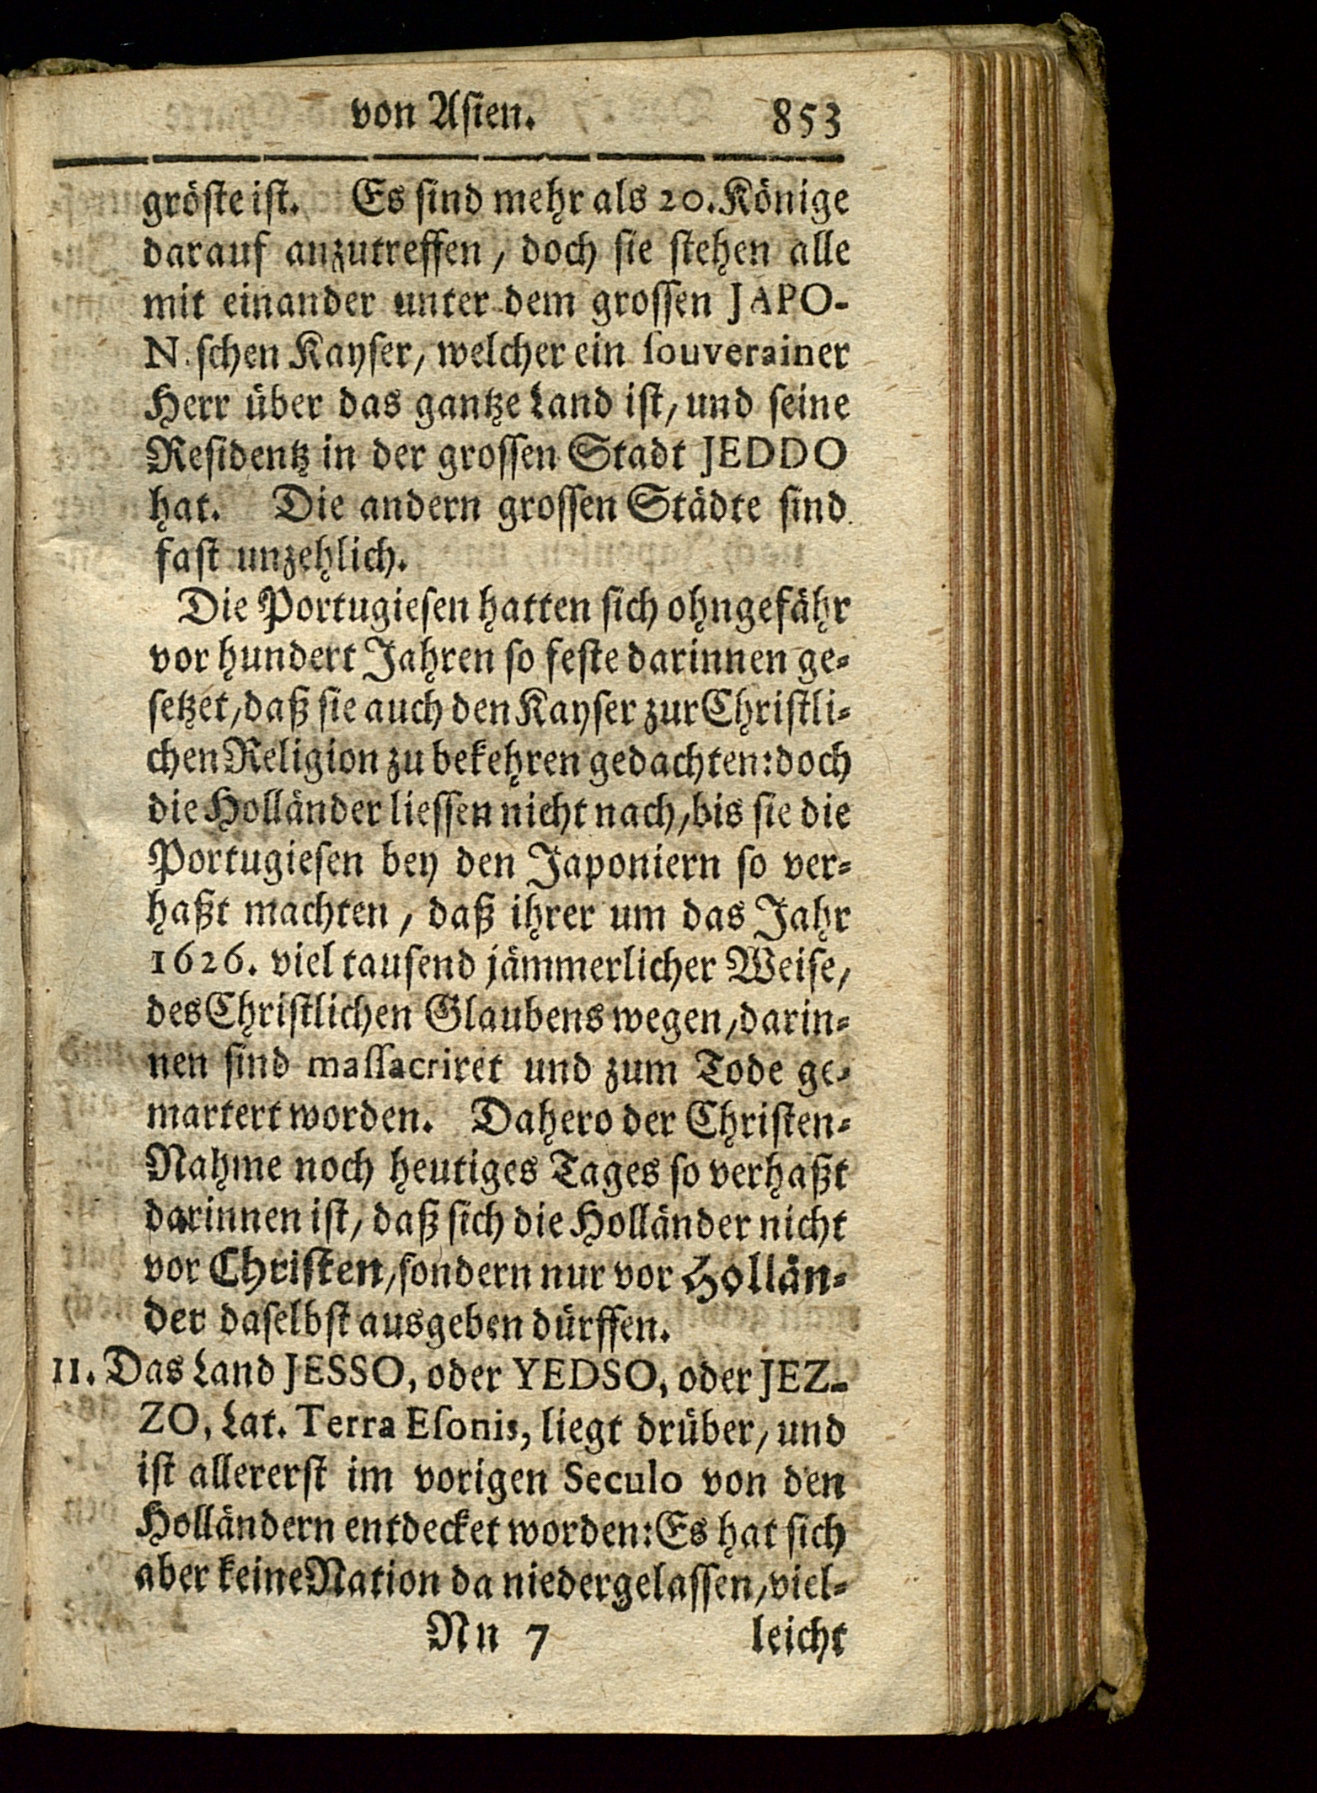 von Asien. 853
gröste ist. Es sind mehr als 20. Könige
darauf anzutreffen, doch sie stehen alle
mit einander unter dem grossen JAPO-
N schen Kayser, welcher ein souverainer
Herr über das gantze Land ist, und seine
Residentz in der grossen Stadt JEDDO
hat. Die andern grossen Städte sind
fast unzehlich.
Die Portugiesen hatten sich ohngefähr
vor hundert Jahren so feste darinnen ge-
setzet, daß sie auch den Kayser zur Christli-
chen Religion zu bekehren gedachten: doch
die Holländer liessen nicht nach, bis sie die
Portugiesen bey den Japoniern so ver-
haßt machten, daß ihrer um das Jahr
1626. viel tausend jämmerlicher Weise,
des Christlichen Glaubens wegen, darin-
nen sind massacriret und zum Tode ge-
martert worden. Dahero der Christen-
Nahme noch heutiges Tages so verhaßt
darinnen ist, daß sich die Holländer nicht
vor Christen, sondern nur vor Hollän-
der daselbst ausgeben dürffen.
11. Das Land JESSO, oder YEDSO, oder JEZ-
ZO, Lat. Terra Esonis, liegt drüber, und
ist allererst im vorigen Seculo von den
Holländern entdecket worden: Es hat sich
aber keine Nation da niedergelassen, viel-
Nn 7 leicht